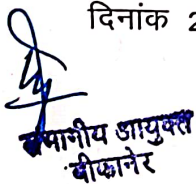 दिनांक 2
संभागीय आयुक्त
बीकानेर